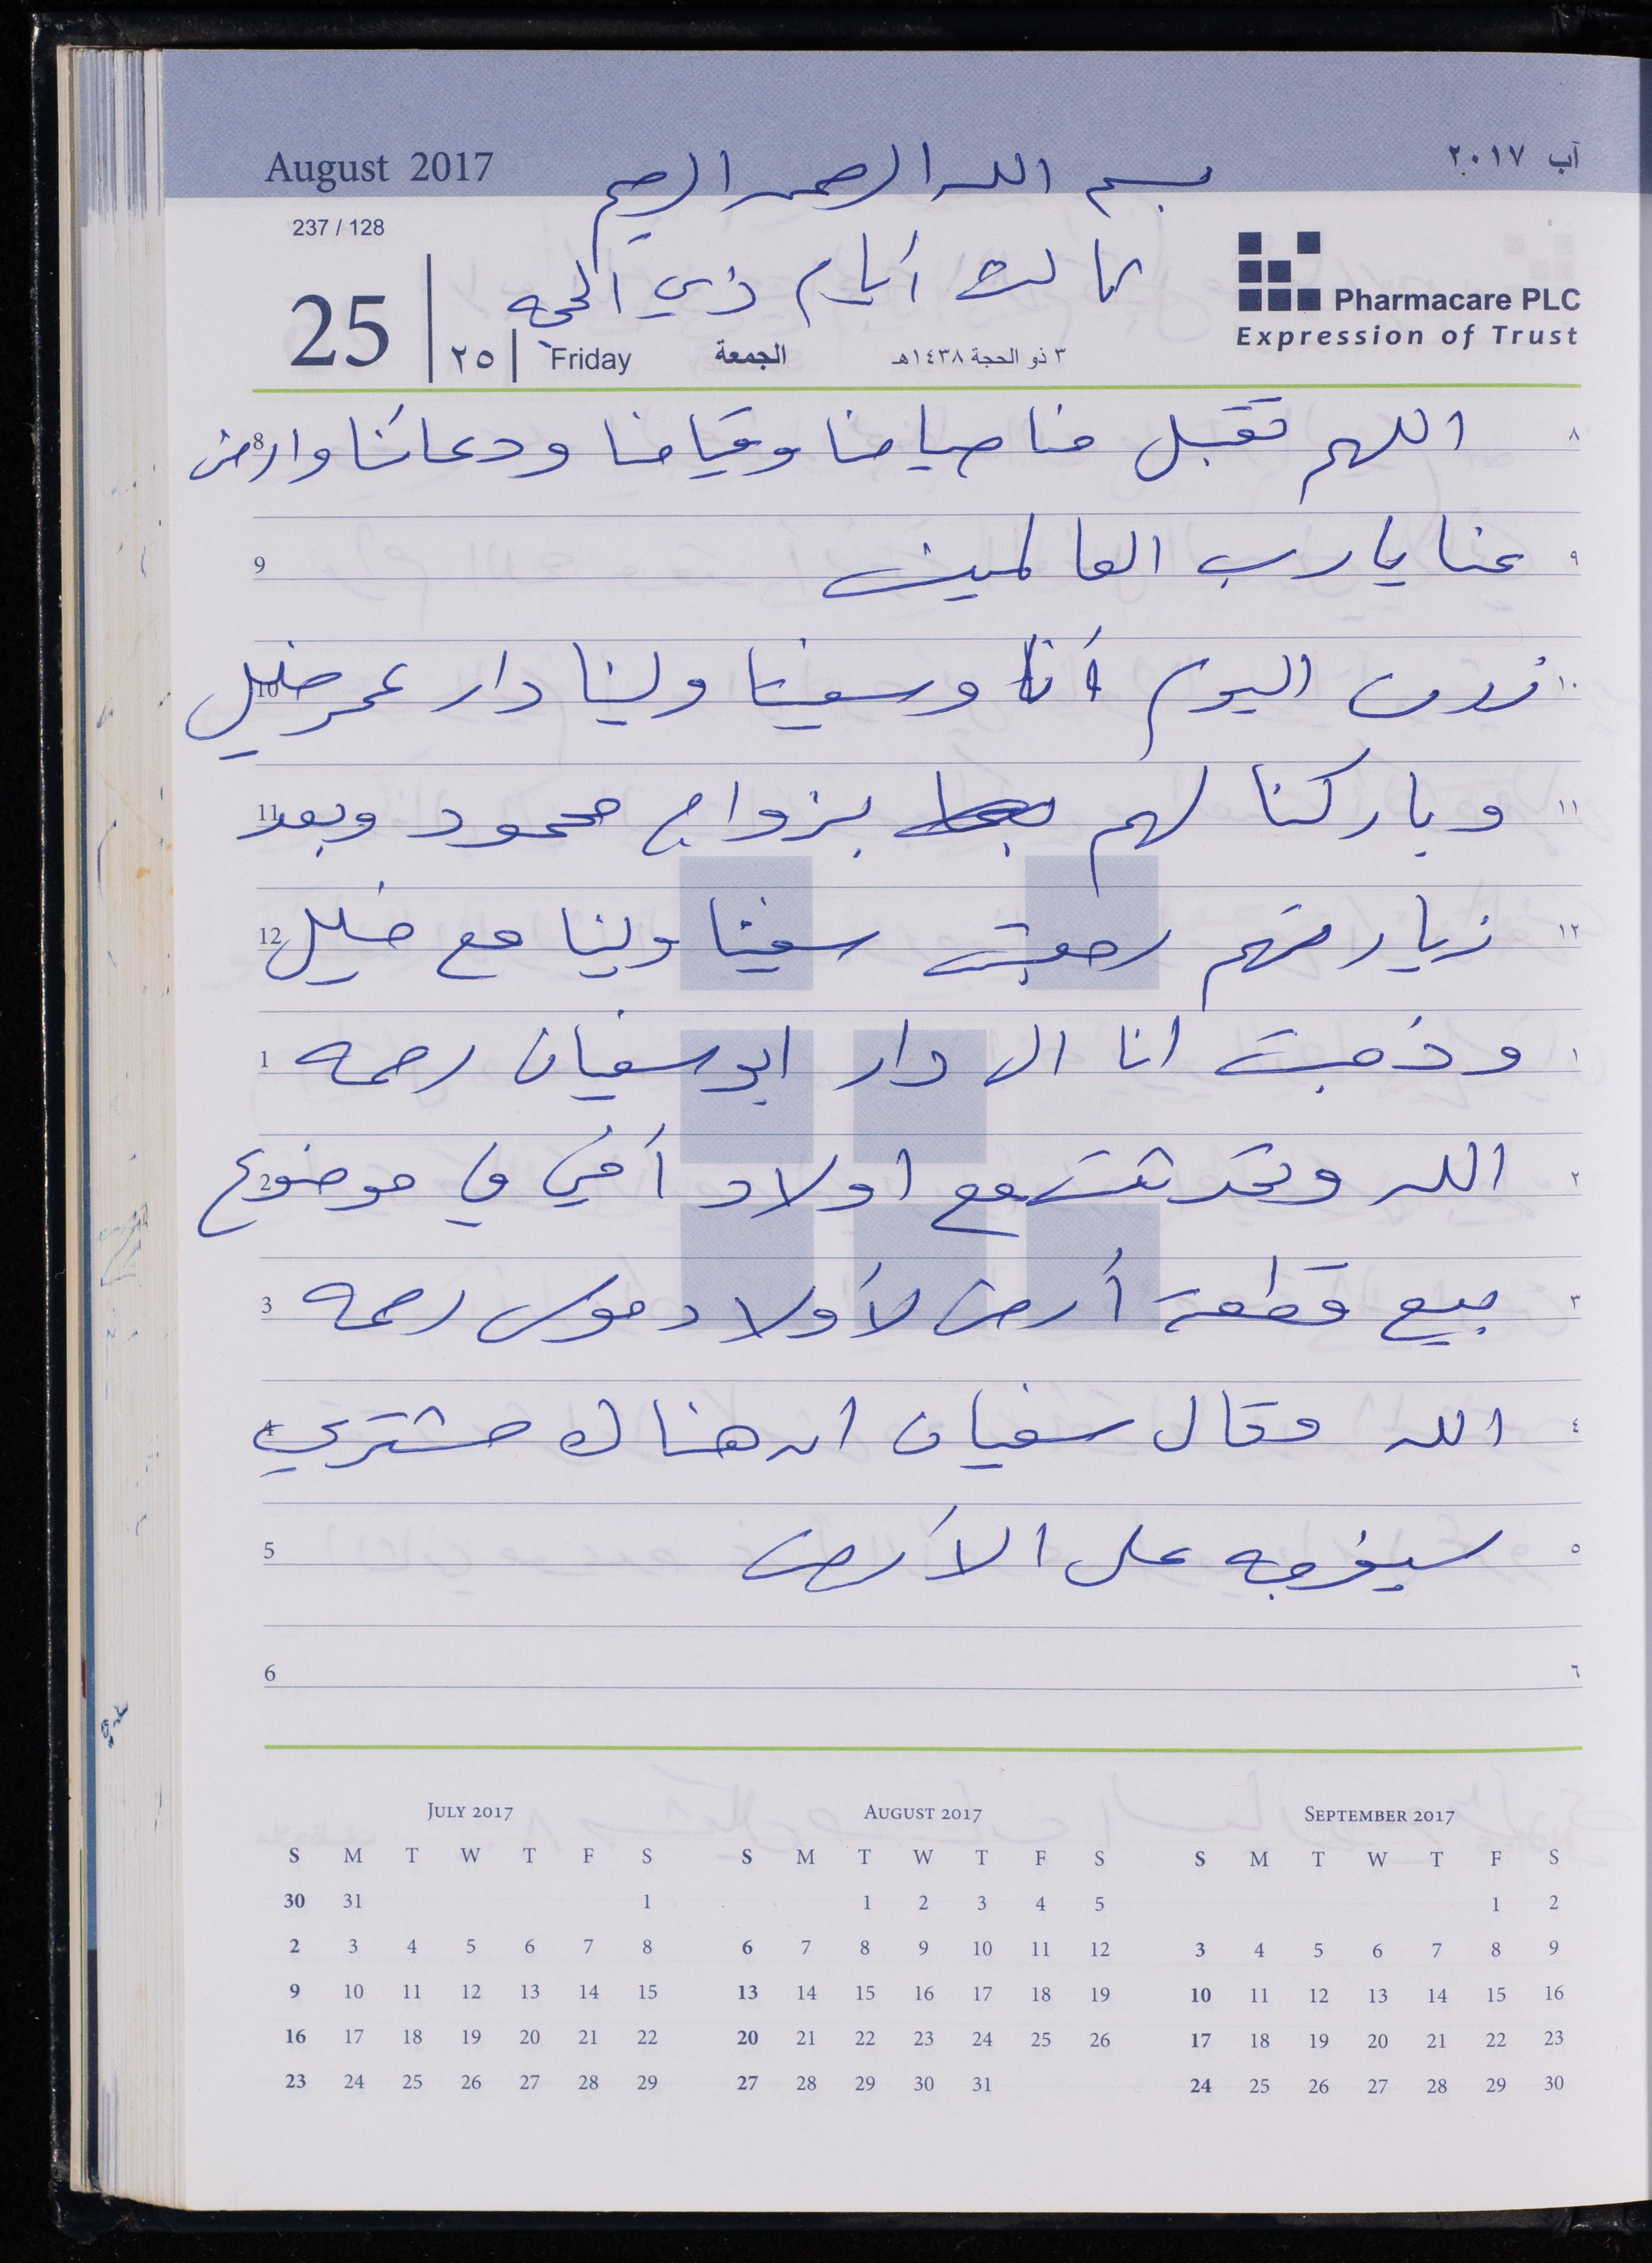 August 2017
بسم الله الرحمن الرحيم
آب ٢٠١٧
237 / 128
ثالث أيام ذي الحجه
Pharmacare PLC
Expression of Trust
25 | ٢٥ | Friday الجمعة ٣ ذو الحجة ١٤٣٨هـ
٨ اللهم تقبل منا صيامنا وقيامنا ودعائنا وارض 8
٩ عنا يا رب العالمين 9
١٠ زرت اليوم أنا وسفينا ولينا دار عمر خليل 10
١١ وباركنا لهم بزواج محمود وبعد 11
١٢ زيارتهم رجعت سفينا ولينا مع خليل 12
١ وذهبت انا الى دار ابو سفيان رحمه 1
٢ الله وتحدثت مع اولاد أخي في موضوع 2
٣ بيع قطعة أرض لأولاد موسى رحمه 3
٤ الله وقال سفيان ان هناك مشتري 4
٥ سيفرجه على الأرض 5
٦ 6
JULY 2017
S M T W T F S
30 31 1
2 3 4 5 6 7 8
9 10 11 12 13 14 15
16 17 18 19 20 21 22
23 24 25 26 27 28 29
AUGUST 2017
S M T W T F S
1 2 3 4 5
6 7 8 9 10 11 12
13 14 15 16 17 18 19
20 21 22 23 24 25 26
27 28 29 30 31
SEPTEMBER 2017
S M T W T F S
1 2
3 4 5 6 7 8 9
10 11 12 13 14 15 16
17 18 19 20 21 22 23
24 25 26 27 28 29 30